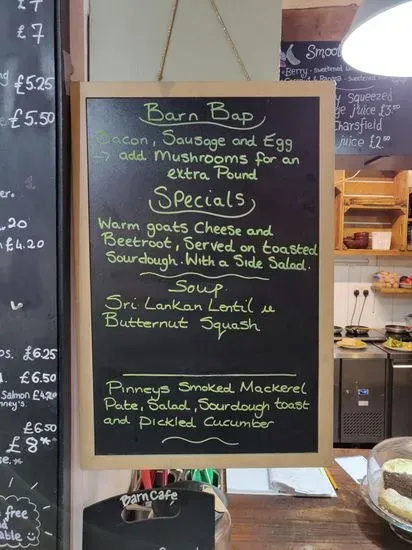 £7
£7
£5.25
£5.50
.20
£4.20
£6.25
£6.50
Salmon £4.20
£6.50
£8**
free
Barn Bap
Bacon, Sausage and Egg
↳ add Mushrooms for an
extra Pound
Specials
Warm goats Cheese and
Beetroot, Served on toasted
Sourdough. With a Side Salad.
Soup
Sri Lankan Lentil u
Butternut Squash
Pinneys Smoked Mackerel
Pate, Salad, Sourdough toast
and Pickled Cucumber
Barn Cafe
Smoo
Berry - sweetened
squeezed
juice £3.50
Charsfield
juice £2.50